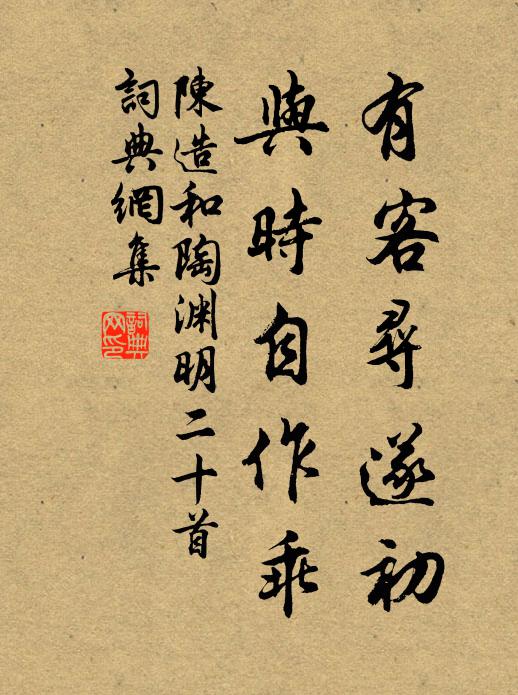 有客尋遂初
與時自作乖
陳造和陶淵明二十首
詞典網集
詞典
网印